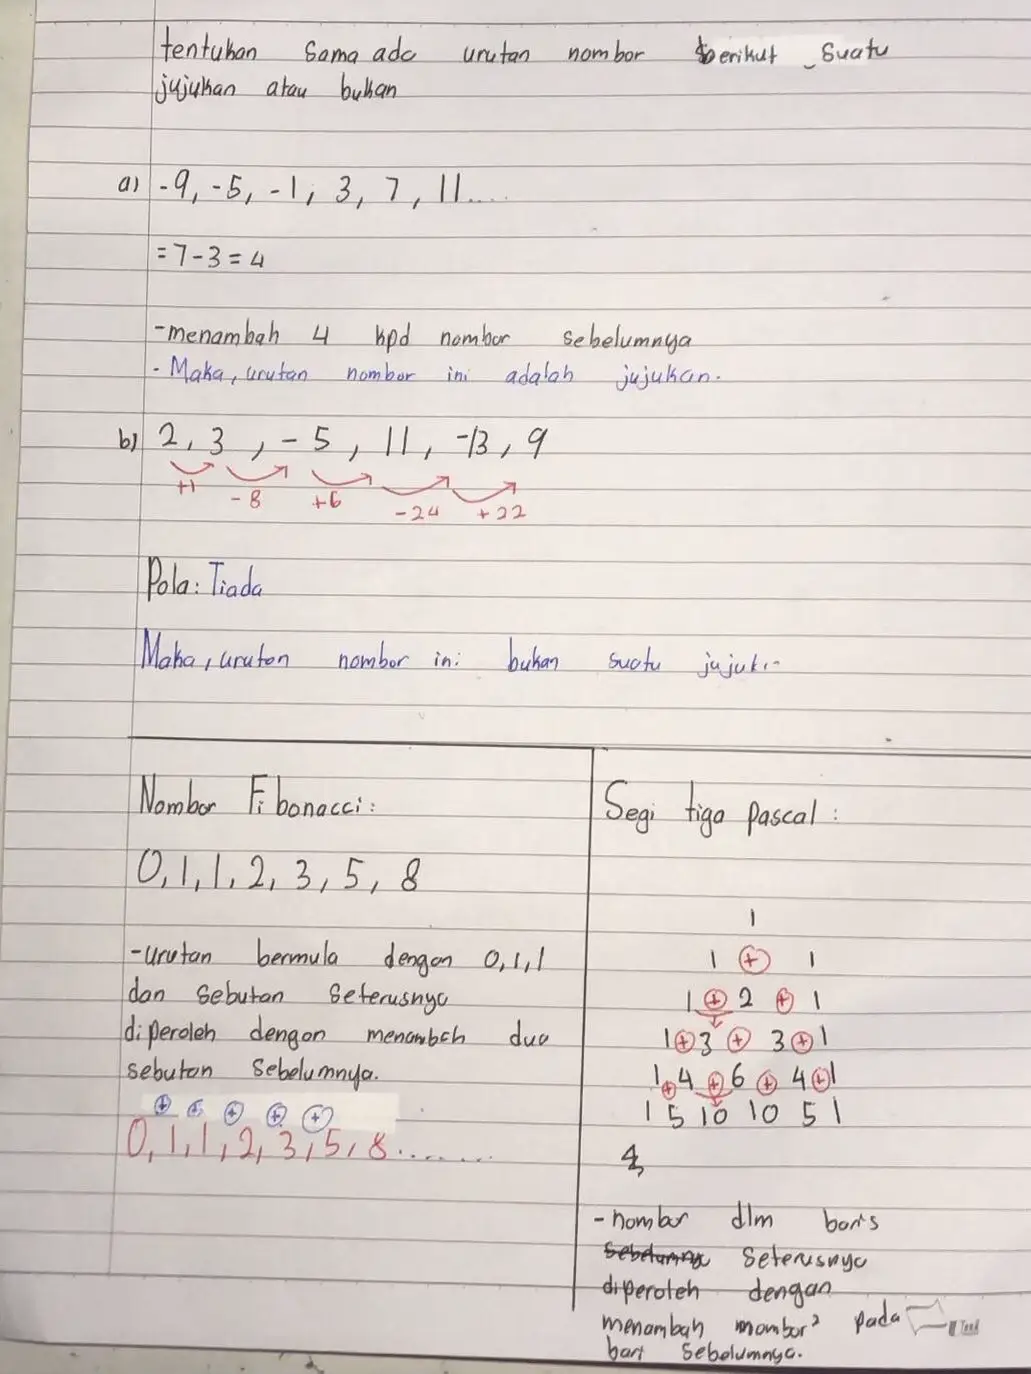 tentukan sama ada urutan nombor berikut suatu
jujukan atau bukan
a) -9, -5, -1, 3, 7, 11.....
= 7 - 3 = 4
- menambah 4 kpd nombor sebelumnya
- Maka, urutan nombor ini adalah jujukan.
b) 2, 3, -5, 11, -13, 9
+1 -8 +6 -24 +22
Pola: Tiada
Maka, urutan nombor ini bukan suatu
Nombor Fibonacci:
0, 1, 1, 2, 3, 5, 8
- urutan bermula dengan 0, 1, 1
dan sebutan seterusnya
diperoleh dengan menambah dua
sebutan sebelumnya.
+ + + + +
0, 1, 1, 2, 3, 5, 8 ........
Segi tiga pascal:
1
1 + 1
1 + 2 + 1
1 + 3 + 3 + 1
1 + 4 + 6 + 4 + 1
1 5 10 10 5 1
- nombor dlm baris
seterusnya
diperoleh dengan
menambah nombor² pada
bari sebelumnya.